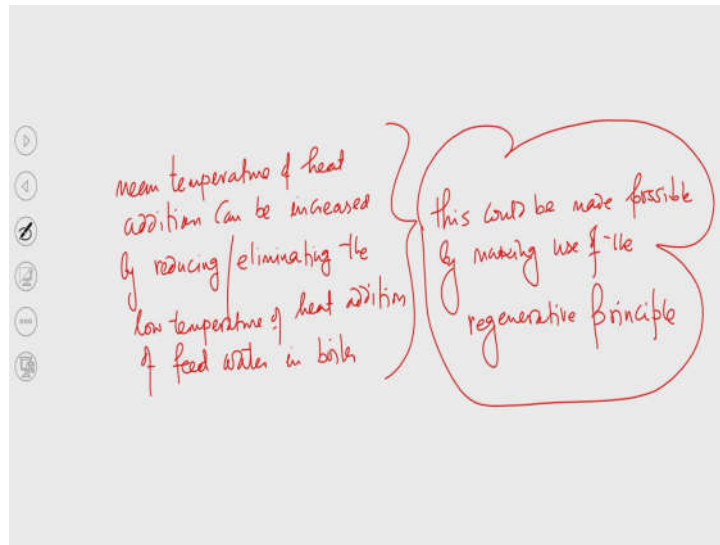 mean temperature of heat
addition can be increased
by reducing/eliminating the
low temperature of heat addition
of feed water in boiler
this could be made possible
by making use of the
regenerative principle